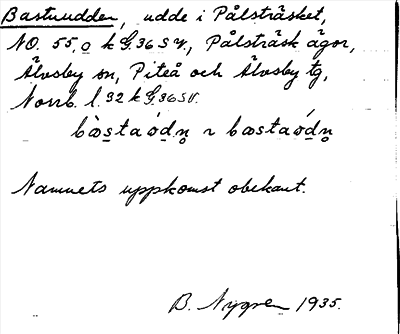 Bastuudden, udde i Pålsträsket,
NO. 55, o k G. 36 SV., Pålsträsk ägor,
Älvsby sn, Piteå och Älvsby tg,
Norrb. l. 92 k G. 36 SV.
bὰstaớdn̥ ~ bastaớdn̥
Namnets uppkomst obekant.
B. Nygren 1935.